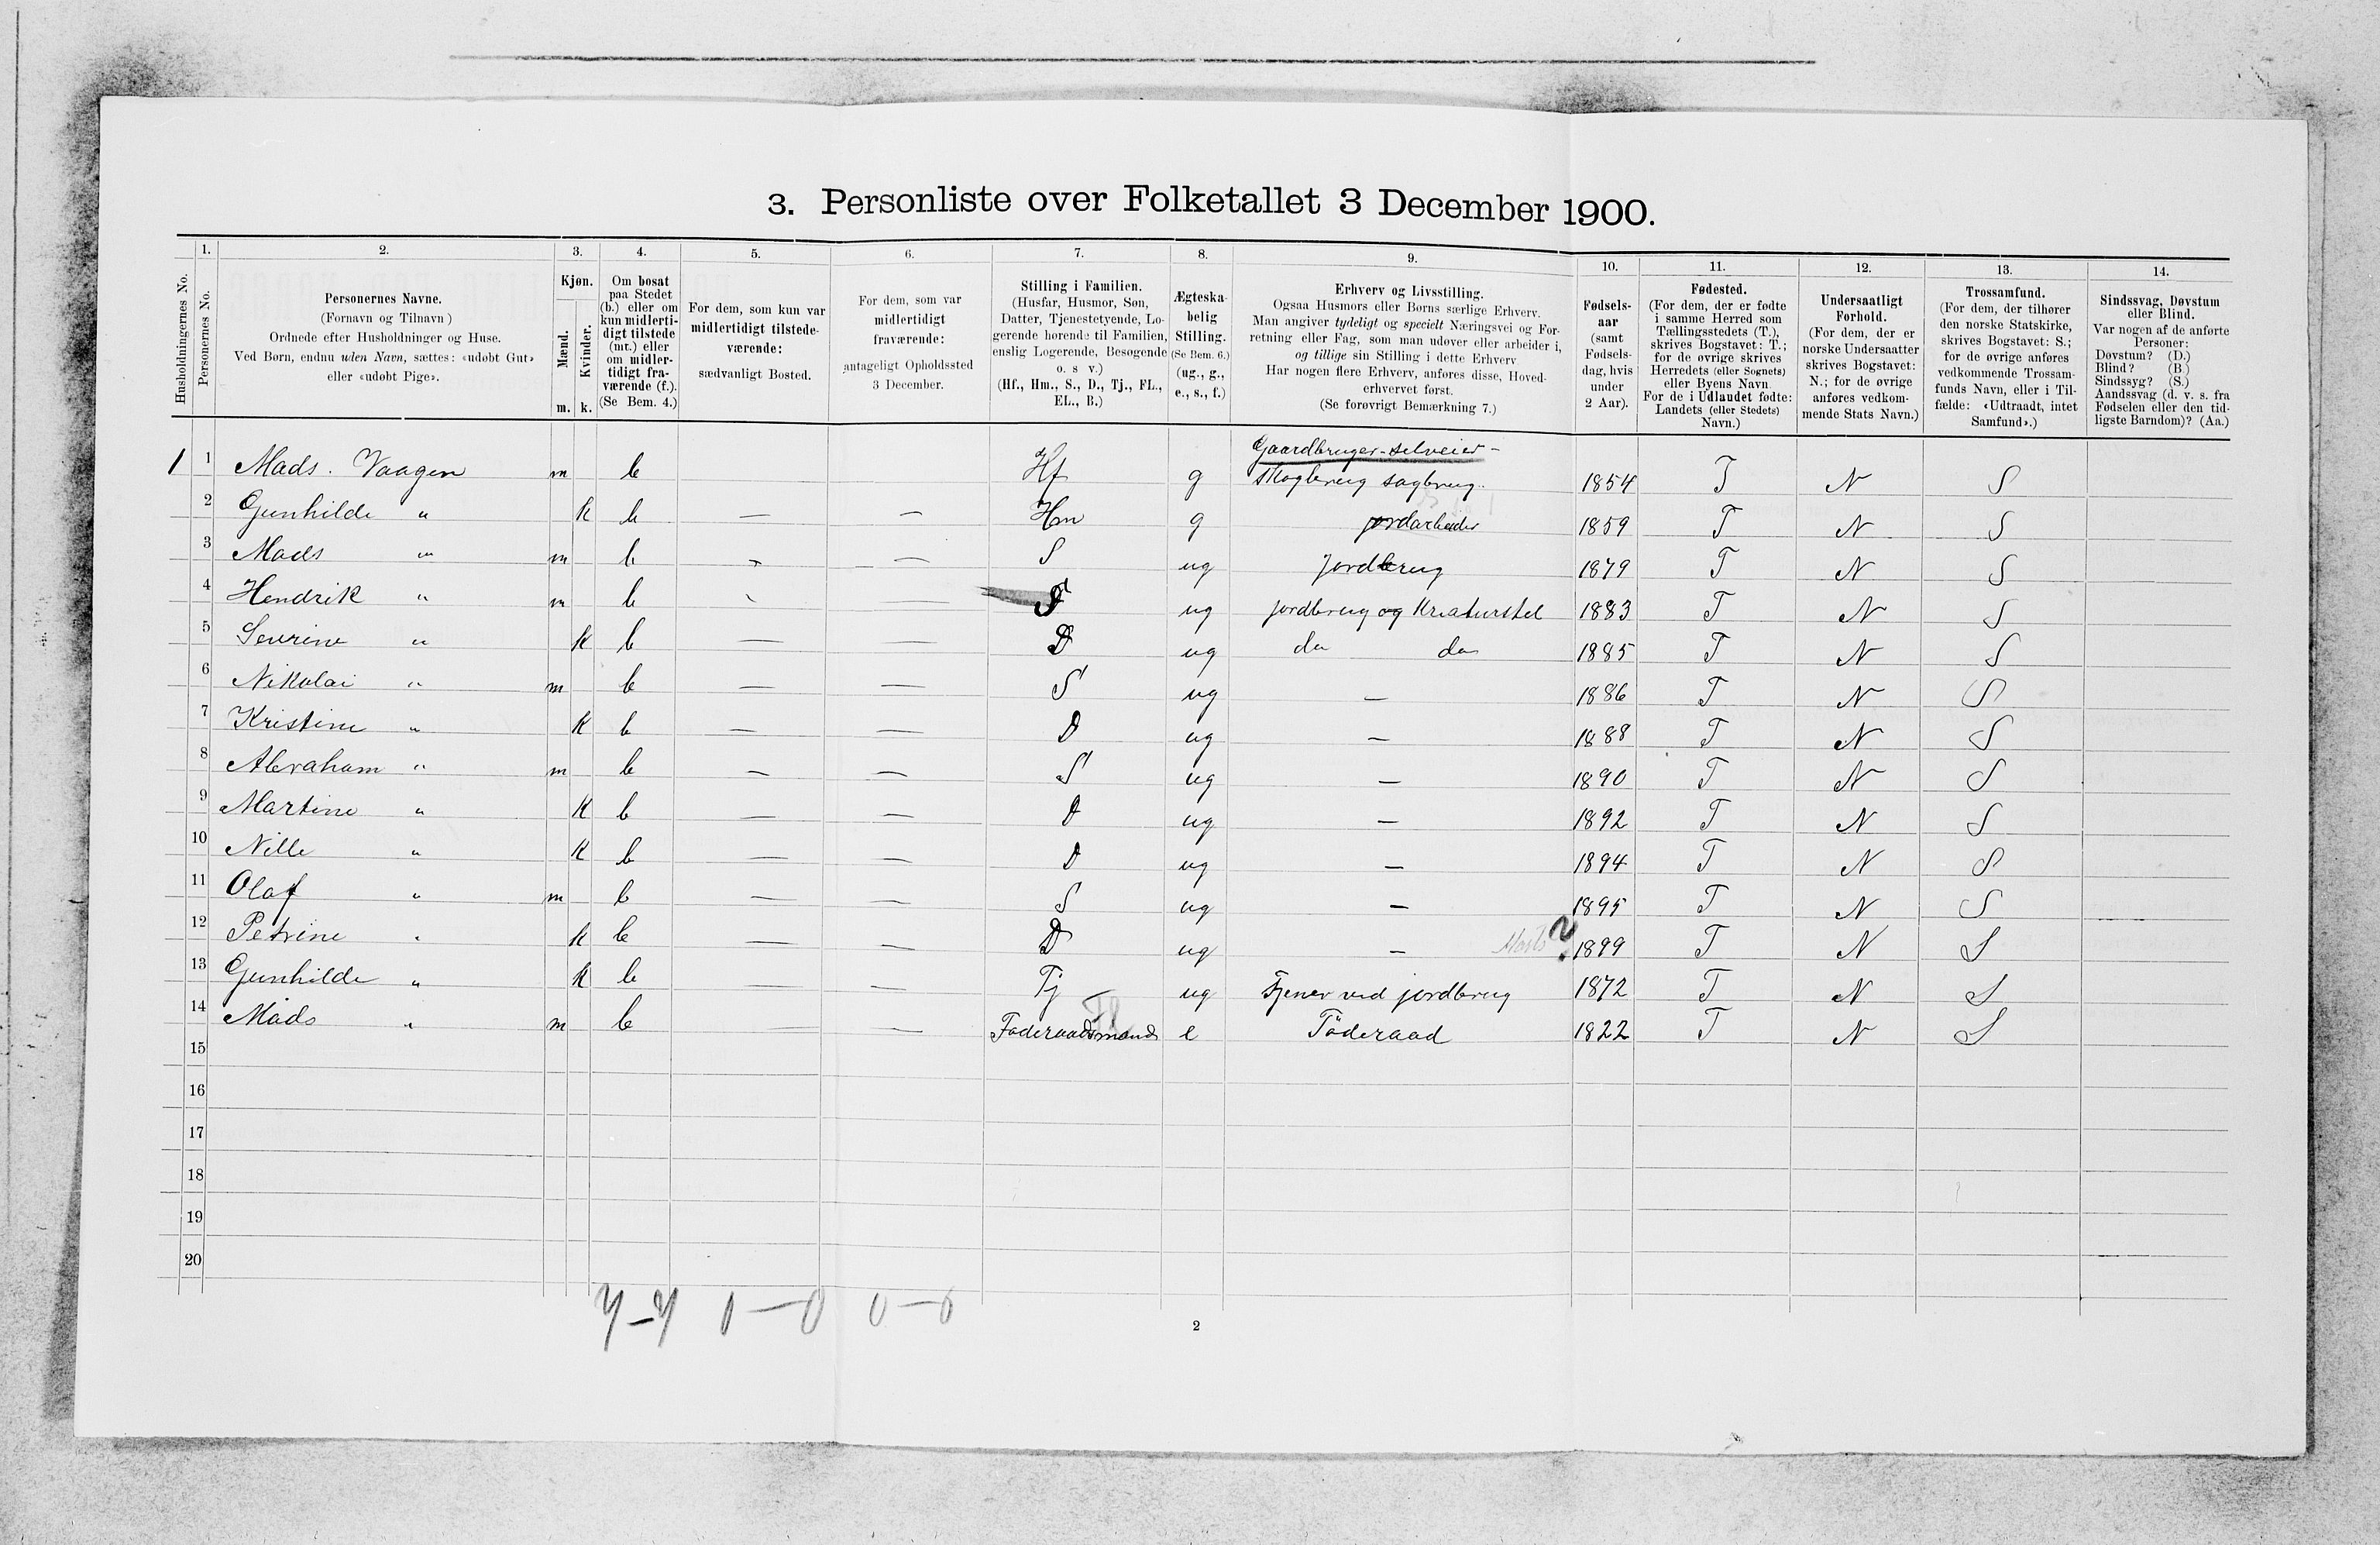 3. Personliste over Folketallet 3 December 1900.
1. 2. 3. 4. 5. 6. 7. 8. 9. 10. 11. 12. 13. 14.
Husholdningernes No.
Personernes No.
Personernes Navne.
(Fornavn og Tilnavn)
Ordnede efter Husholdninger og Huse.
Ved Børn, endnu uden Navn, sættes: «udøbt Gut»
eller «udøbt Pige».
Kjøn.
Mænd.
Kvinder.
m. k.
Om bosat
paa Stedet
(b.) eller om
kun midlerti-
digt tilstede
(mt.) eller
om midler-
tidigt fra-
værende (f.).
(Se Bem. 4.)
For dem, som kun var
midlertidigt tilstede-
værende:
sædvanligt Bosted.
For dem, som var
midlertidigt
fraværende:
antageligt Opholdssted
3 December.
Stilling i Familien.
(Husfar, Husmor, Søn,
Datter, Tjenestetyende, Lo-
gerende hørende til Familien,
enslig Logerende, Besøgende
o. s v.)
(Hf., Hm., S., D., Tj., FL.,
EL., B.)
Ægteska-
belig
Stilling.
(Se Bem. 6.)
(ug., g.,
e., s., f.)
Erhverv og Livsstilling.
Ogsaa Husmors eller Børns særlige Erhverv.
Man angiver tydeligt og specielt Næringsvei og For-
retning eller Fag, som man udøver eller arbeider i,
og tillige sin Stilling i dette Erhverv
Har nogen flere Erhverv, anføres disse, Hoved-
erhvervet først.
(Se forøvrigt Bemærkning 7.)
Fødsels-
aar
(samt
Fødsels-
dag, hvis
under
2 Aar).
Fødested.
(For dem, der er fødte
i samme Herred som
Tællingsstedets (T.),
skrives Bogstavet: T.;
for de øvrige skrives
Herredets (eller Sognets)
eller Byens Navn
For de i Udlandet fødte:
Landets (eller Stedets)
Navn.)
Undersaatligt
Forhold.
(For dem, der er
norske Undersaatter
skrives Bogstavet:
N.; for de øvrige
anføres vedkom-
mende Stats Navn.)
Trossamfund.
(For dem, der tilhører
den norske Statskirke,
skrives Bogstavet: S.;
for de øvrige anføres
vedkommende Trossam-
funds Navn, eller i Til-
fælde: «Udtraadt, intet
Samfund».)
Sindssvag, Døvstum
eller Blind.
Var nogen af de anførte
Personer:
Døvstum? (D.)
Blind? (B.)
Sindssyg? (S.)
Aandssvag (d. v. s. fra
Fødselen eller den tid-
ligste Barndom)? (Aa.)
Gaardbruger-selveier-
1 1 Mads. Vaagen m b Hf g skogbrug sagbrug. 1854 T N S
2 Gunhilde " k b — — Hm g jordarbeider 1859 T N S
3 Mads " m b — — S ug Jordbrug 1879 T N S
4 Hendrik " m b — S ug jordbrug og Kreaturstel 1883 T N S
5 Severine " k b — — D ug do do 1885 T N S
6 Nikolai " m b — — S ug — 1886 T N S
7 Kristine " k b — — D ug — 1888 T N S
8 Abraham " m b — — S ug — 1890 T N S
9 Martine " k b — — D ug — 1892 T N S
10 Nille " k b — — D ug — 1894 T N S
11 Olaf " m b — — S ug — 1895 T N S
12 Petrine " k b — — D ug — ? 1899 T N S
13 Gunhilde " k b — — Tj ug Tjener ved jordbrug 1872 T N S
14 Mads " m b — — Føderaadsmand Fl e Føderaad 1822 T N S
15
16
17
18
19
20
7–7 0–0 0–0
2